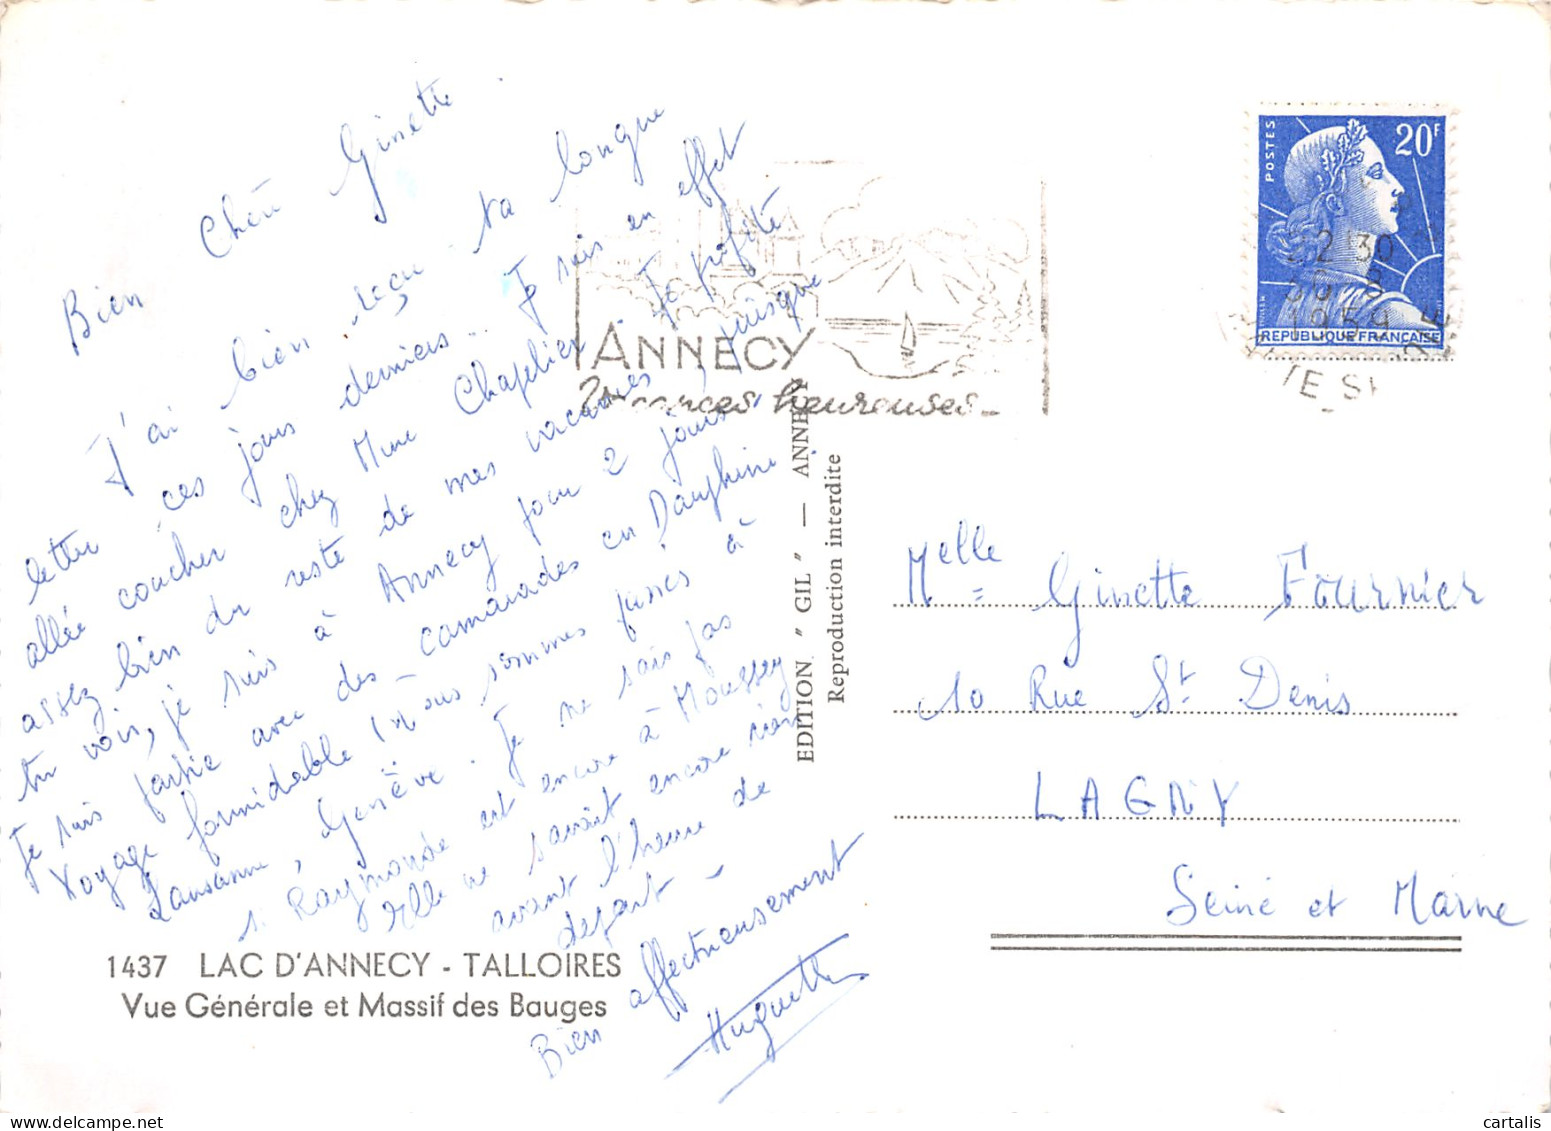 Bien Chère Ginette
J'ai bien reçu ta longue
lettre ces jours derniers. Je suis en effet
allée coucher chez Mme Chapelier. Je profite
assez bien du reste de mes vacances, puisque
tu vois, je suis à Annecy pour 2 jours.
Je suis partie avec des camarades en Dauphiné.
Voyage formidable. Nous sommes passés à
Lausanne, Genève. Je ne sais pas
si Raymonde est encore à Moussey
elle ne savait encore rien
avant l'heure de
départ -
Bien affectueusement
Huguette
1437 LAC D'ANNECY - TALLOIRES
Vue Générale et Massif des Bauges
ANNECY
Vacances heureuses_
EDITION "GIL" — ANNECY
Reproduction interdite
POSTES
20F
REPUBLIQUE FRANÇAISE
30 8
1959
Melle Ginette Fournier
10 Rue St Denis
LAGNY
Seine et Marne
cartalis